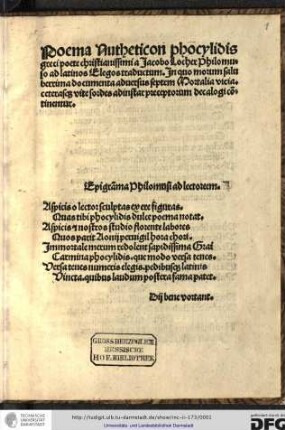 Poema Nutheticon phocylidis
greci poete christianissimi a Jacobo Locher Philomu-
so ad latinos Elegos traductum. In quo morum salu
berrima documenta adversus septem Mortalia vicia.
ceterasqz vite sordes ad instar preceptorum decalogi cō
tinentur.
Epigrāma Philomusi ad lectorem.
Aspicis o lector sculptas ex ere figuras.
Quas tibi phocylidis dulce poema notat.
Aspicis & nostros studio florente labores
Quos parit Aonij pervigil hora chori.
Immortale merum redolent sapidissima Grai
Carmina phocylidis. que modo versa tenes.
Versa tenes numeris elegis. pedibusqz latinis
Vincta. quibus laudum postera fama patet.
Dij bene vortant.
GROSSHERZOGLICH
HESSISCHE
HOFBIBLIOTHEK
TECHNISCHE
UNIVERSITÄT
DARMSTADT
http://tudigit.ulb.tu-darmstadt.de/show/inc-ii-173/0001
Universitäts- und Landesbibliothek Darmstadt
DFG